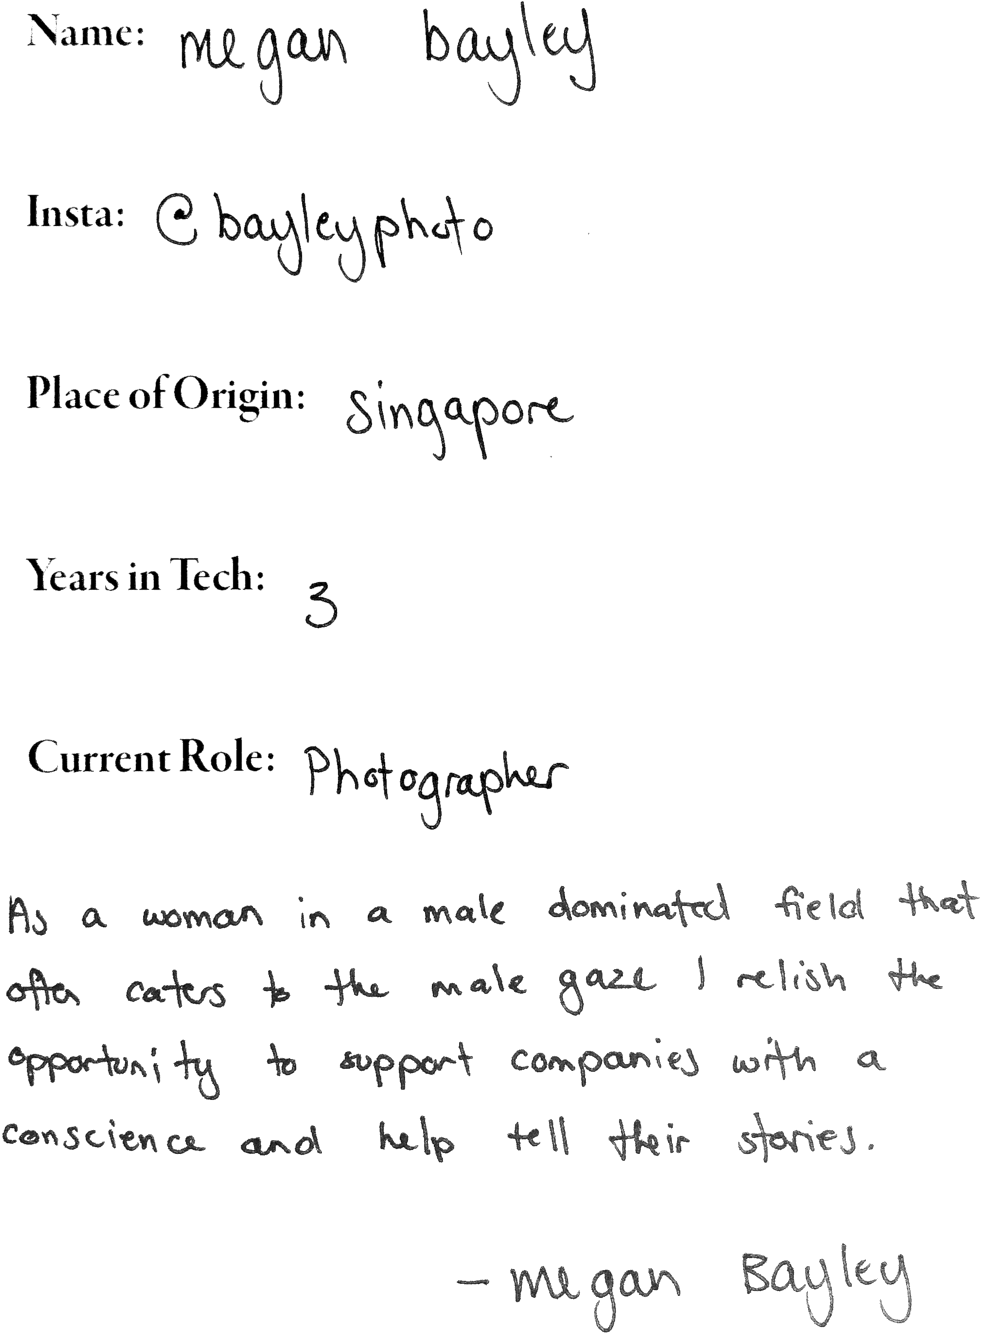 Name: megan bayley
Insta: @bayleyphoto
Place of Origin: Singapore
Years in Tech: 3
Current Role: Photographer
As a woman in a male dominated field that
often caters to the male gaze I relish the
opportunity to support companies with a
conscience and help tell their stories.
- megan Bayley